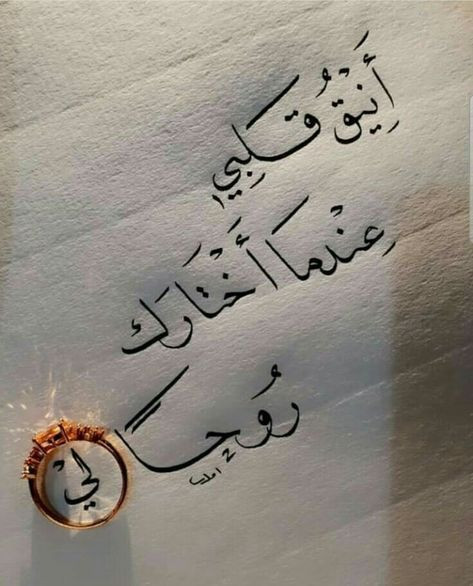 أَنِيْقٌ قَلْبِي
عِنْدَمَا أَخْتَارَكِ
رُوْحًا لِيْ